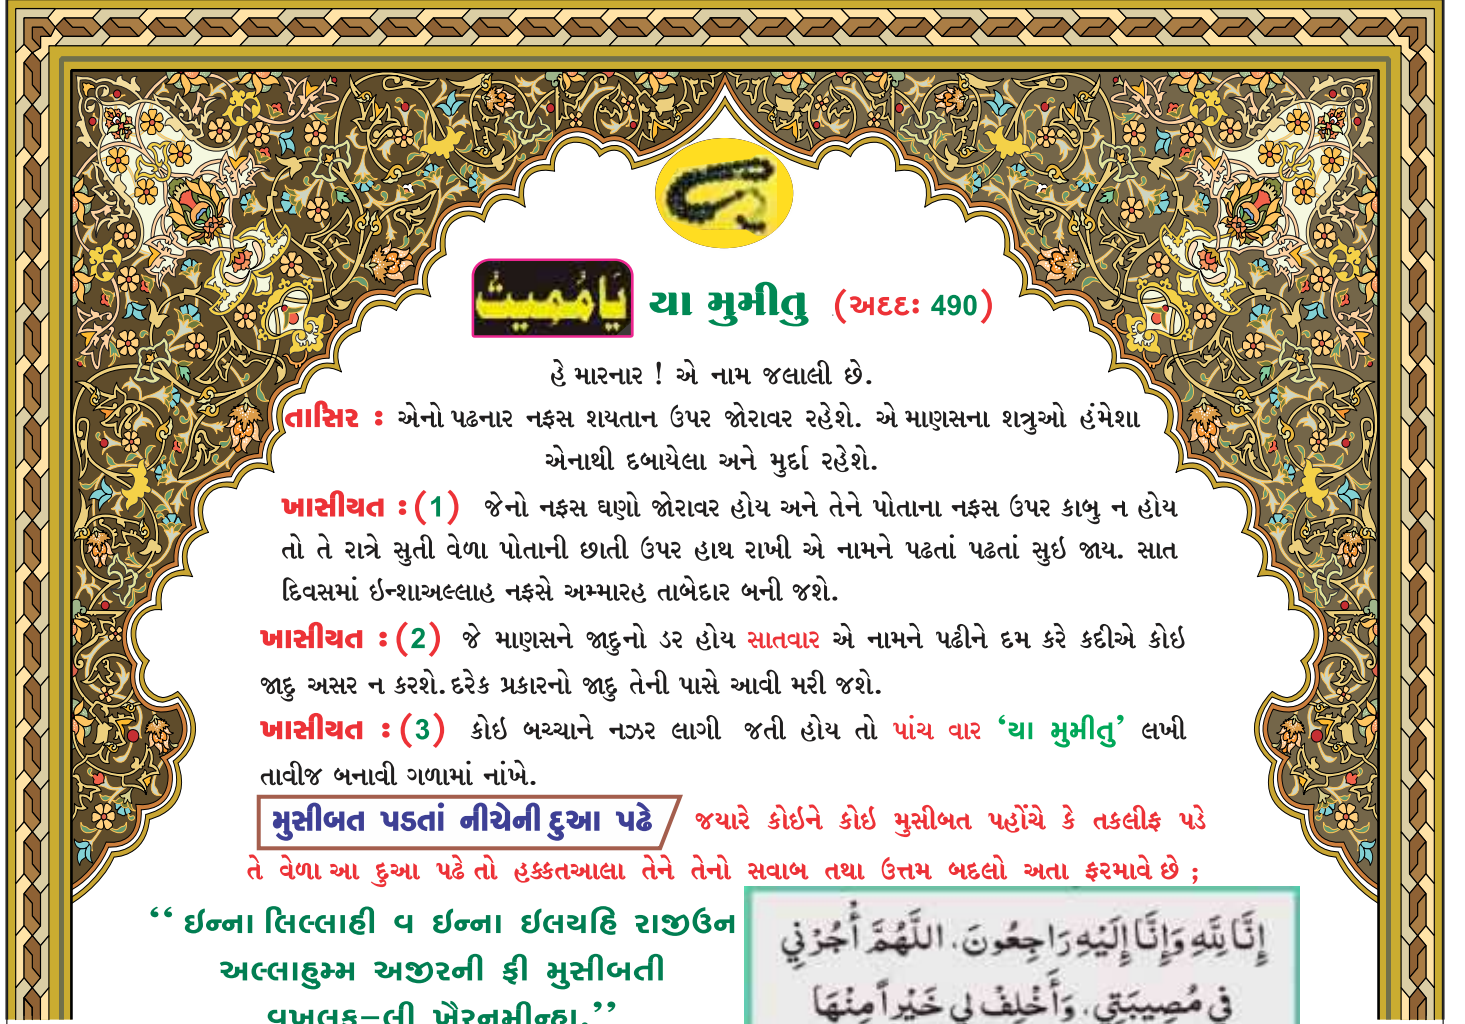 يَا مُمِيتُ યા મુમીતુ (અદદઃ 490)
હે મારનાર ! એ નામ જલાલી છે.
તાસિર : એનો પઢનાર નફસ શયતાન ઉપર જોરાવર રહેશે. એ માણસના શત્રુઓ હંમેશા
એનાથી દબાયેલા અને મુર્દા રહેશે.
ખાસીયત : (1) જેનો નફસ ઘણો જોરાવર હોય અને તેને પોતાના નફસ ઉપર કાબુ ન હોય
તો તે રાત્રે સુતી વેળા પોતાની છાતી ઉપર હાથ રાખી એ નામને પઢતાં પઢતાં સુઇ જાય. સાત
દિવસમાં ઇન્શાઅલ્લાહ નફસે અમ્મારહ તાબેદાર બની જશે.
ખાસીયત : (2) જે માણસને જાદુનો ડર હોય સાતવાર એ નામને પઢીને દમ કરે કદીએ કોઇ
જાદુ અસર ન કરશે. દરેક પ્રકારનો જાદુ તેની પાસે આવી મરી જશે.
ખાસીયત : (3) કોઇ બચ્ચાને નઝર લાગી જતી હોય તો પાંચ વાર ‘યા મુમીતુ’ લખી
તાવીજ બનાવી ગળામાં નાંખે.
મુસીબત પડતાં નીચેની દુઆ પઢે જયારે કોઇને કોઇ મુસીબત પહોંચે કે તકલીફ પડે
તે વેળા આ દુઆ પઢે તો હક્કતઆલા તેને તેનો સવાબ તથા ઉત્તમ બદલો અતા ફરમાવે છે ;
‘‘ ઇન્ના લિલ્લાહી વ ઇન્ના ઇલયહિ રાજીઉન
અલ્લાહુમ્મ અજીરની ફી મુસીબતી
વખલુક–લી ખૈરનમીન્હા.’’
إِنَّا لِلَّهِ وَإِنَّا إِلَيْهِ رَاجِعُونَ. اللَّهُمَّ أُجُرْنِي
فِي مُصِيبَتِي. وَأَخْلِفْ لِي خَيْراً مِنْهَا